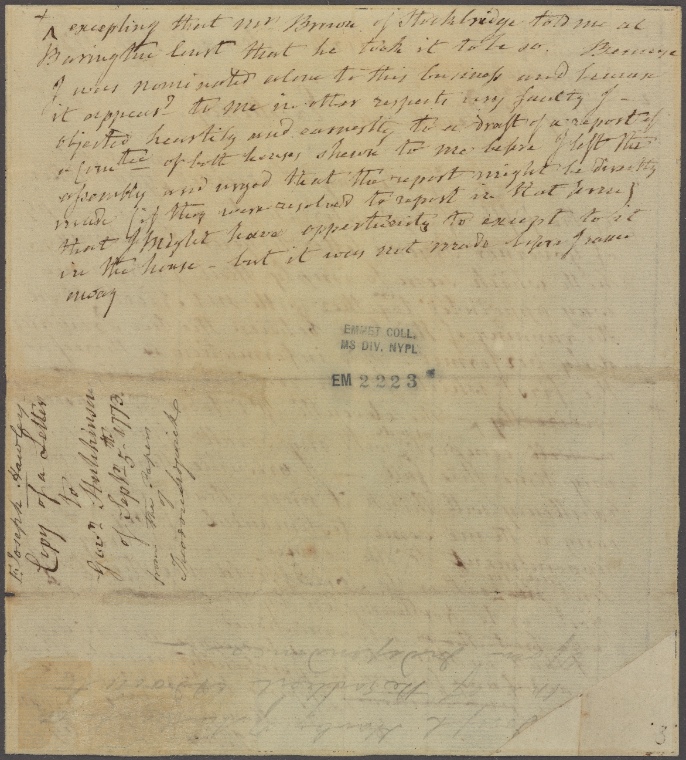 +
^ excepting that Mr Brown of Stockbridge told me at
Barington Court that he took it to be so. Because
I was nominated alone to this business and because
it appeard to me in other respects very faulty I -
objected heartily and earnestly to a draft of a report of
a Comtee of both houses shewn to me before I left the
assembly and urged that the report might be directly
made (if they were resolved to report in that form)
that I might have opportunity to except to it
in the house - but it was not made before I came
away
EMMET COLL.
MS DIV. NYPL
EM 2223
Fr Joseph Hawley
Copy of a Letter
to
Govr. Hutchinson
of Septr. 5th 1773.
from the Papers
of
3